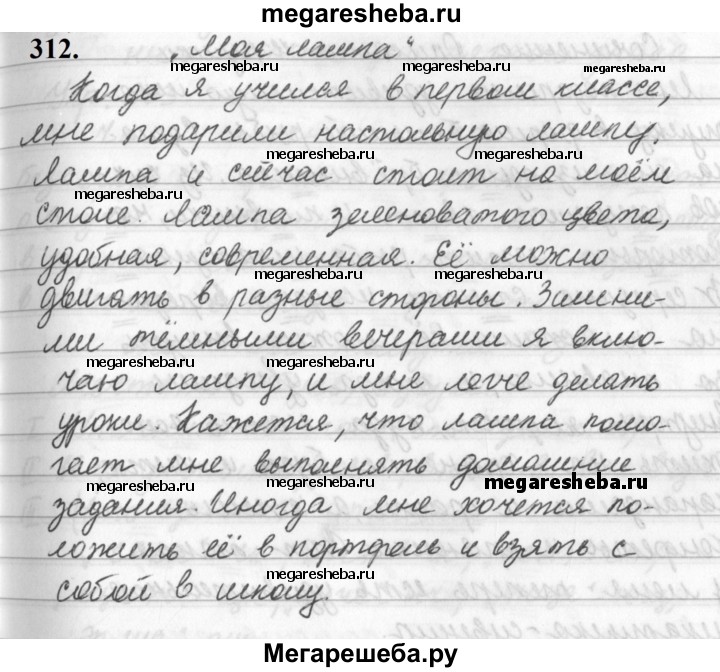 megaresheba.ru
312. „Моя лампа“
megaresheba.ru megaresheba.ru megaresheba.ru
Когда я учился в первом классе,
мне подарили настольную лампу.
megaresheba.ru megaresheba.ru
Лампа и сейчас стоит на моём
megaresheba.ru
столе. Лампа зеленоватого цвета,
удобная, современная. Её можно
megaresheba.ru megaresheba.ru
двигать в разные стороны. Зимни-
ми тёмными вечерами я вклю-
megaresheba.ru megaresheba.ru
чаю лампу, и мне легче делать
уроки. Кажется, что лампа помо-
megaresheba.ru megaresheba.ru
гает мне выполнять домашние
megaresheba.ru
задания. Иногда мне хочется по-
megaresheba.ru
ложить её в портфель и взять с
megaresheba.ru
собой в школу.
megaresheba.ru megaresheba.ru
Мегарешеба.ру